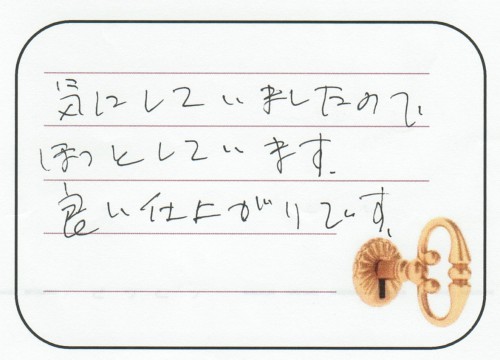 気にしていましたので
ほっとしています.
良い仕上がりです.